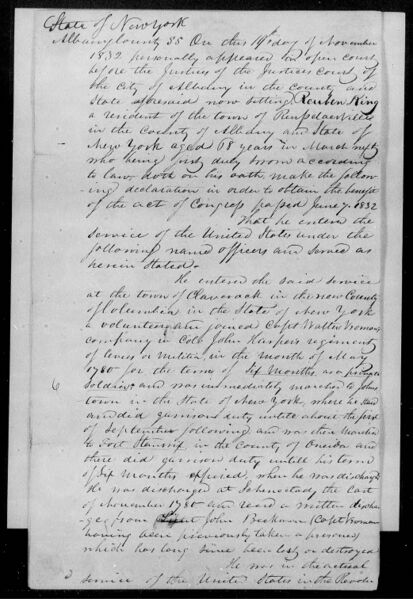 State of New York
Albany County SS On this 19th day of November
1832 personally appeared in open court
before the Justices of the Justices Court of
the City of Albany in the county and
State aforesaid now sitting Reuben King
a resident of the town of Rensselaerville
in the County of Albany and State of
New York aged 68 years in March next
who being first duly sworn according
to law doth on his oath, make the follow-
ing declaration in order to obtain the benefit
of the act of Congress passed June 7. 1832
That he entered the
service of the United States under the
following named officers and served as
herein stated.
He entered the said service
at the town of Claverack in the now County
of Columbia in the State of New York
a volunteer and joined Capt Walter Vroomans
company in Colo John Harpers regiment
of levies or militia in the month of May
1780 for the term of Six Months as a private
Soldier, and was immediately marched to Johns
town in the State of New York, where he staid
and did garrison duty untill about the first
of September following and was then marched
to Fort Stanwix in the County of Oneida and
there did garrison duty untill his term
of Six Months expired, when he was dischargd
He was discharged at Schenectady the last
of November 1780 and recd a written dischar-
ge from John Beekman (Capt Vrooman
having been previously taken a prisoner)
which has long since been lost or destroyed
He was in the actual
service of the United States in the Revolu